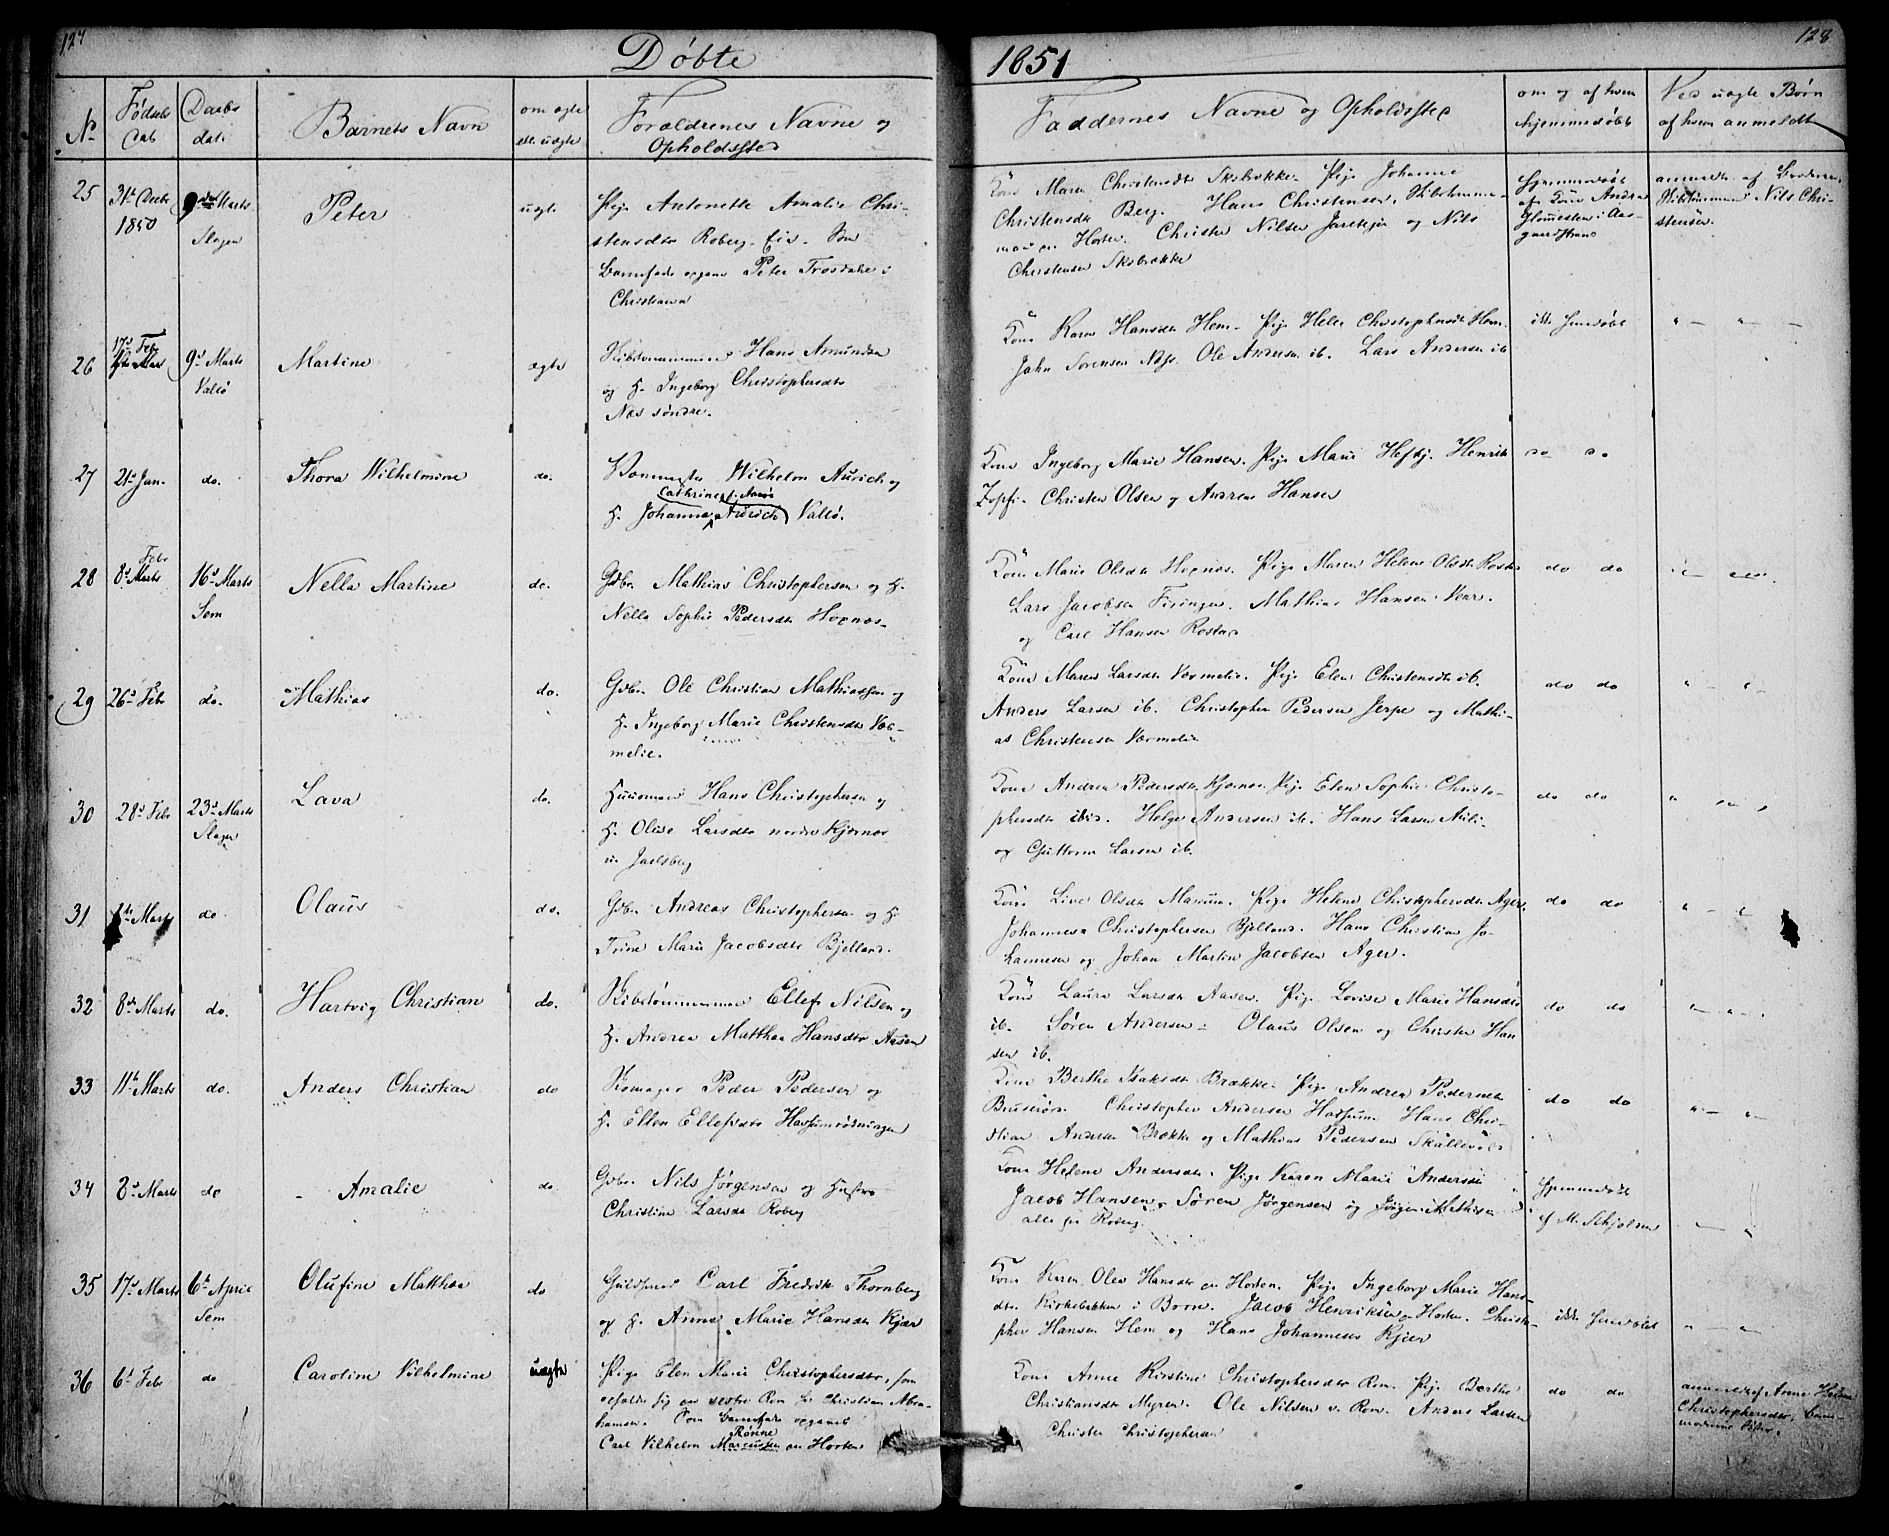 127
Døbte
1851
128
No
Fødsels
Dat.
Daabs
dat.
Barnets Navn
om ægte
ell. uægte
Forældrenes Navne og
Opholdsste
Faddernes Navne og Opholdsste
om og af hvem
hjemmedøbt
Ved uægte Børn
af hvem anmeldt
25
31te Decbr
1850
9de Marts
Slagen
Peter
uægte
Pige Antonette Amalie Chri-
stensdtr Roberg Eie. Som
Barnefader opgives Peter Trosdahl i
Christiania
Kone Maren Christensdtr Skibække. Pige Johanne
Christensdtr Berg. Hans Christensen, Skibstømmer-
mand paa Horten. Christen Nilsen Jaretejen og Nils
Christensen Skibække
Hjemmedøbt
af Kone Andrea
i Aas-
gaardstrand
anmeldt af Broderen,
Skibstømmermd Nils Chri-
stensen.
26
17d Feb
9d Marts
Vallø
Martine
ægte
Skibstømmermand Hans Amundsen
og H. Ingeborg Christophersdtr
Næs søndre.
Kone Karen Hansdtr Hem. Pige Helen Christophersdtr Hem.
John Sørensen Næs. Ole Andersen ib. Lars Andersen ib
ikke hjemdøbt
" — " —
27
21d Jan.
do.
Thora Wilhelmine
do.
Wilhelm Aurich og
Cathrine f. Aarøe
H. Johanna Aurich Vallø.
Kone Ingeborg Marie Hansen. Pige Marie Hefty. Henrik
Zopfi. Christen Olsen og Andreas Hansen
do do
28
Febr
8d Marts
16d Marts
Sem
Nella Martine
do.
Gdbr. Mathias Christophersen og H.
Nella Sophie Pedersdtr Hognæs.
Kone Marie Olsdtr Hognæs. Pige Maren Helene Olsdtr Rostad
Lars Jacobsen Feringen. Mathias Hansen Vear.
og Carl Hansen Rostad
do do
29
26d Febr
do.
Mathias
do.
Gdbr. Ole Christian Mathiassen og
H. Ingeborg Marie Christensdtr Vær-
melie.
Kone Maren Larsdtr Værmelie. Pige Elen Christensdtr ib.
Anders Larsen ib. Christopher Pedersen Jerpe og Mathi-
as Christensen Værmelie
do do
" — " —
30
28d Febr
23d Marts
Slagen
Lava
do.
Huusmand Hans Christophersen og
H. Olise Larsdtr nordre Kjørnes
u. Jarlsberg
Kone Andrea Pedersdtr Kjørnes. Pige Elen Sophie Christo-
phersdtr ibid. Helge Andersen ib. Hans Larsen
og Guttorm Larsen ib.
do do
31
1te Marts
do.
Olaus
do.
Gdbr. Andreas Christophersen og H.
Trine Marie Jacobsdtr Bjelland.
Kone Live Olsdtr Marum. Pige Helene Christophersdtr Ager.
Johannes Christophersen Bjelland. Hans Christian Jo-
hannesen og Johan Martin Jacobsen Ager.
do do
" — "
32
8de Marts
do.
Hartvig Christian
do.
Skibstømmermand Ellef Nilsen og
H. Andrea Matthea Hansdtr Aasen
Kone Laura Larsdtr Aasen. Pige Lovise Marie Hansdtr
ib. Søren Andersen. Olaus Olsen og Christen Han
sen ib.
do do
33
11te Marts
do.
Anders Christian
do
Skomager Peder Pedersen og
H. Ellen Ellefsdtr Hassumrødningen
Kone Berthe Isaksdtr Brække. Pige Andrea Pedersen
Bruserød. Christopher Andersen Hassum. Hans Chri-
stian Andersen Brække og Mathias Pedersen Skallevold
do do
" — " —
34
8d Marts
do
Amalie
do
Gdbr. Nils Jørgensen og Hustro
Christine Larsdtr Roberg
Kone Helene Andersdtr. Pige Karen Marie Andersdtr
Jacob Hansen. Søren Jørgensen og Jørgen Mathisen
alle fra Roberg
Hjemmedøbt
af M. Schjølsen
35
17d Marts
6te April
Sem
Olufine Matthea
do
Guldsmed Carl Fredrik Thornberg
og H. Anne Marie Hansdtr Kjær
Kone Karen Olea Hansdtr paa Horten. Pige Ingeborg Marie Hans-
dtr. Kirkebakken i Borre. Jacob Henriksen paa Horten. Christo-
pher Hansen Hem og Hans Johannesen Kjær
ikke hjemdøbt
" "
36
6te Febr
do
Caroline Vilhelmine
uægte
Pige Elen Marie Christophersdtr, som
opholder sig paa vestre Rom hos Christian Abra-
hamsen. Som Barnefader opgives
Rønne
Carl Vilhelm Marcussen paa Horten
Kone Anne Kirstine Christophersdtr Rom. Pige Berthe
Christiansdtr Myren. Ole Nilsen v. Rom. Anders Larsen
Christen Christophersen
do do
anmeldt af Anne Helene
Christophersdtr, Barne-
moderens Søster.